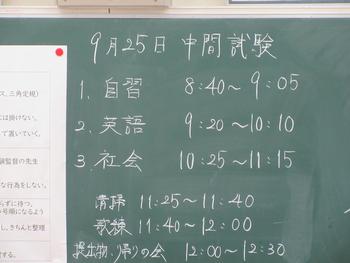 9月25日 中間試験
1. 自習 8:40～9:05
2. 英語 9:20～10:10
3. 社会 10:25～11:15
清掃 11:25～11:40
歌練 11:40～12:00
提出物、帰りの会 12:00～12:30
ス、三角定規)
には掛けない。
して置いていく。
試験監督の先生
な行為をしない。
らずに待つ。
号順になるよう
し、きちんと整理
する。